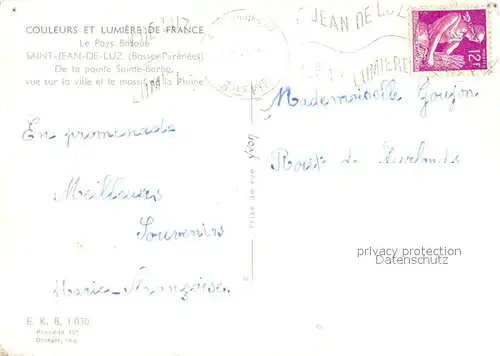 COULEURS ET LUMIÈRE DE FRANCE
Le Pays Basque
SAINT-JEAN-DE-LUZ (Basses-Pyrénées)
De la pointe Sainte-Barbe,
vue sur la ville et le massif de la Rhune
JEAN DE LUZ
LUMIÈRE
12F
Mademoiselle Goujon
Route de
En promenade
Meilleurs
Souvenirs
Marie-Françoise
Prise de vue Yvon
privacy protection
Datenschutz
E. K. B. 1 036
Draeger, Imp.